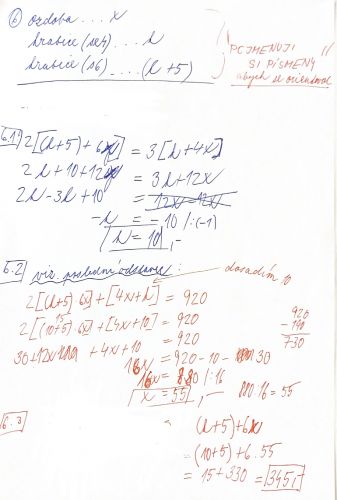 6 ozdoba ... x
krabice (1x4) ... k
krabice (16) .... (k+5)
POJMENUJI
SI PÍSMENY
abych se orientoval
6.1 2[(k+5)+6x] = 3[k+4x]
2k+10+12x = 3k+12x
2k-3k+10 = 12x-12x
-k = -10 /:(-1)
k = 10,-
6.2 viz. poslední odstavec:
dosadím 10
2[(k+5) 6x]+[4x+k] = 920
2[(10+5) 6x]+[4x+10] = 920
30+12x +4x+10 = 920
920
-190
730
16x = 920-10-30
16x = 880 /:16
x = 55,-
:16 = 55
6.3
(k+5)+6x
= (10+5)+6.55
= 15+330 = 345,-